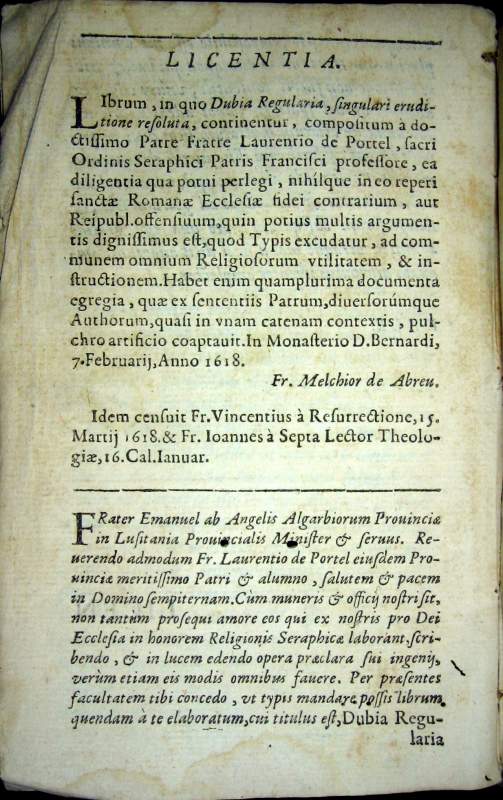 LICENTIA.
LIbrum, in quo Dubia Regularia, singulari erudi-
tione resoluta, continentur, compositum à do-
ctissimo Patre Fratre Laurentio de Portel, sacri
Ordinis Seraphici Patris Francisci professore, ea
diligentia qua potui perlegi, nihilque in eo reperi
sanctæ Romanæ Ecclesiæ fidei contrarium, aut
Reipubl.offensiuum,quin potius multis argumen-
tis dignissimus est,quod Typis excudatur, ad com-
munem omnium Religiosorum vtilitatem, & in-
structionem.Habet enim quamplurima documenta
egregia, quæ ex sententiis Patrum,diuersorúmque
Authorum,quasi in vnam catenam contextis, pul-
chro artificio coaptauit.In Monasterio D.Bernardi,
7.Februarij,Anno 1618.
Fr. Melchior de Abreu.
Idem censuit Fr.Vincentius à Resurrectione,15.
Martij 1618.& Fr. Ioannes à Septa Lector Theolo-
giæ,16.Cal.Ianuar.
FRater Emanuel ab Angelis Algarbiorum Prouinciæ
in Lusitania Prouincialis Minister & seruus. Re-
uerendo admodum Fr. Laurentio de Portel eiusdem Pro-
uinciæ meritissimo Patri & alumno, salutem & pacem
in Domino sempiternam.Cum muneris & officij nostri sit,
non tantum prosequi amore eos qui ex nostris pro Dei
Ecclesia in honorem Religionis Seraphicæ laborant,scri-
bendo, & in lucem edendo opera præclara sui ingenij,
verùm etiam eis modis omnibus fauere. Per præsentes
facultatem tibi concedo, vt typis mandare possis librum
quendam à te elaboratum,cui titulus est,Dubia Regu-
laria